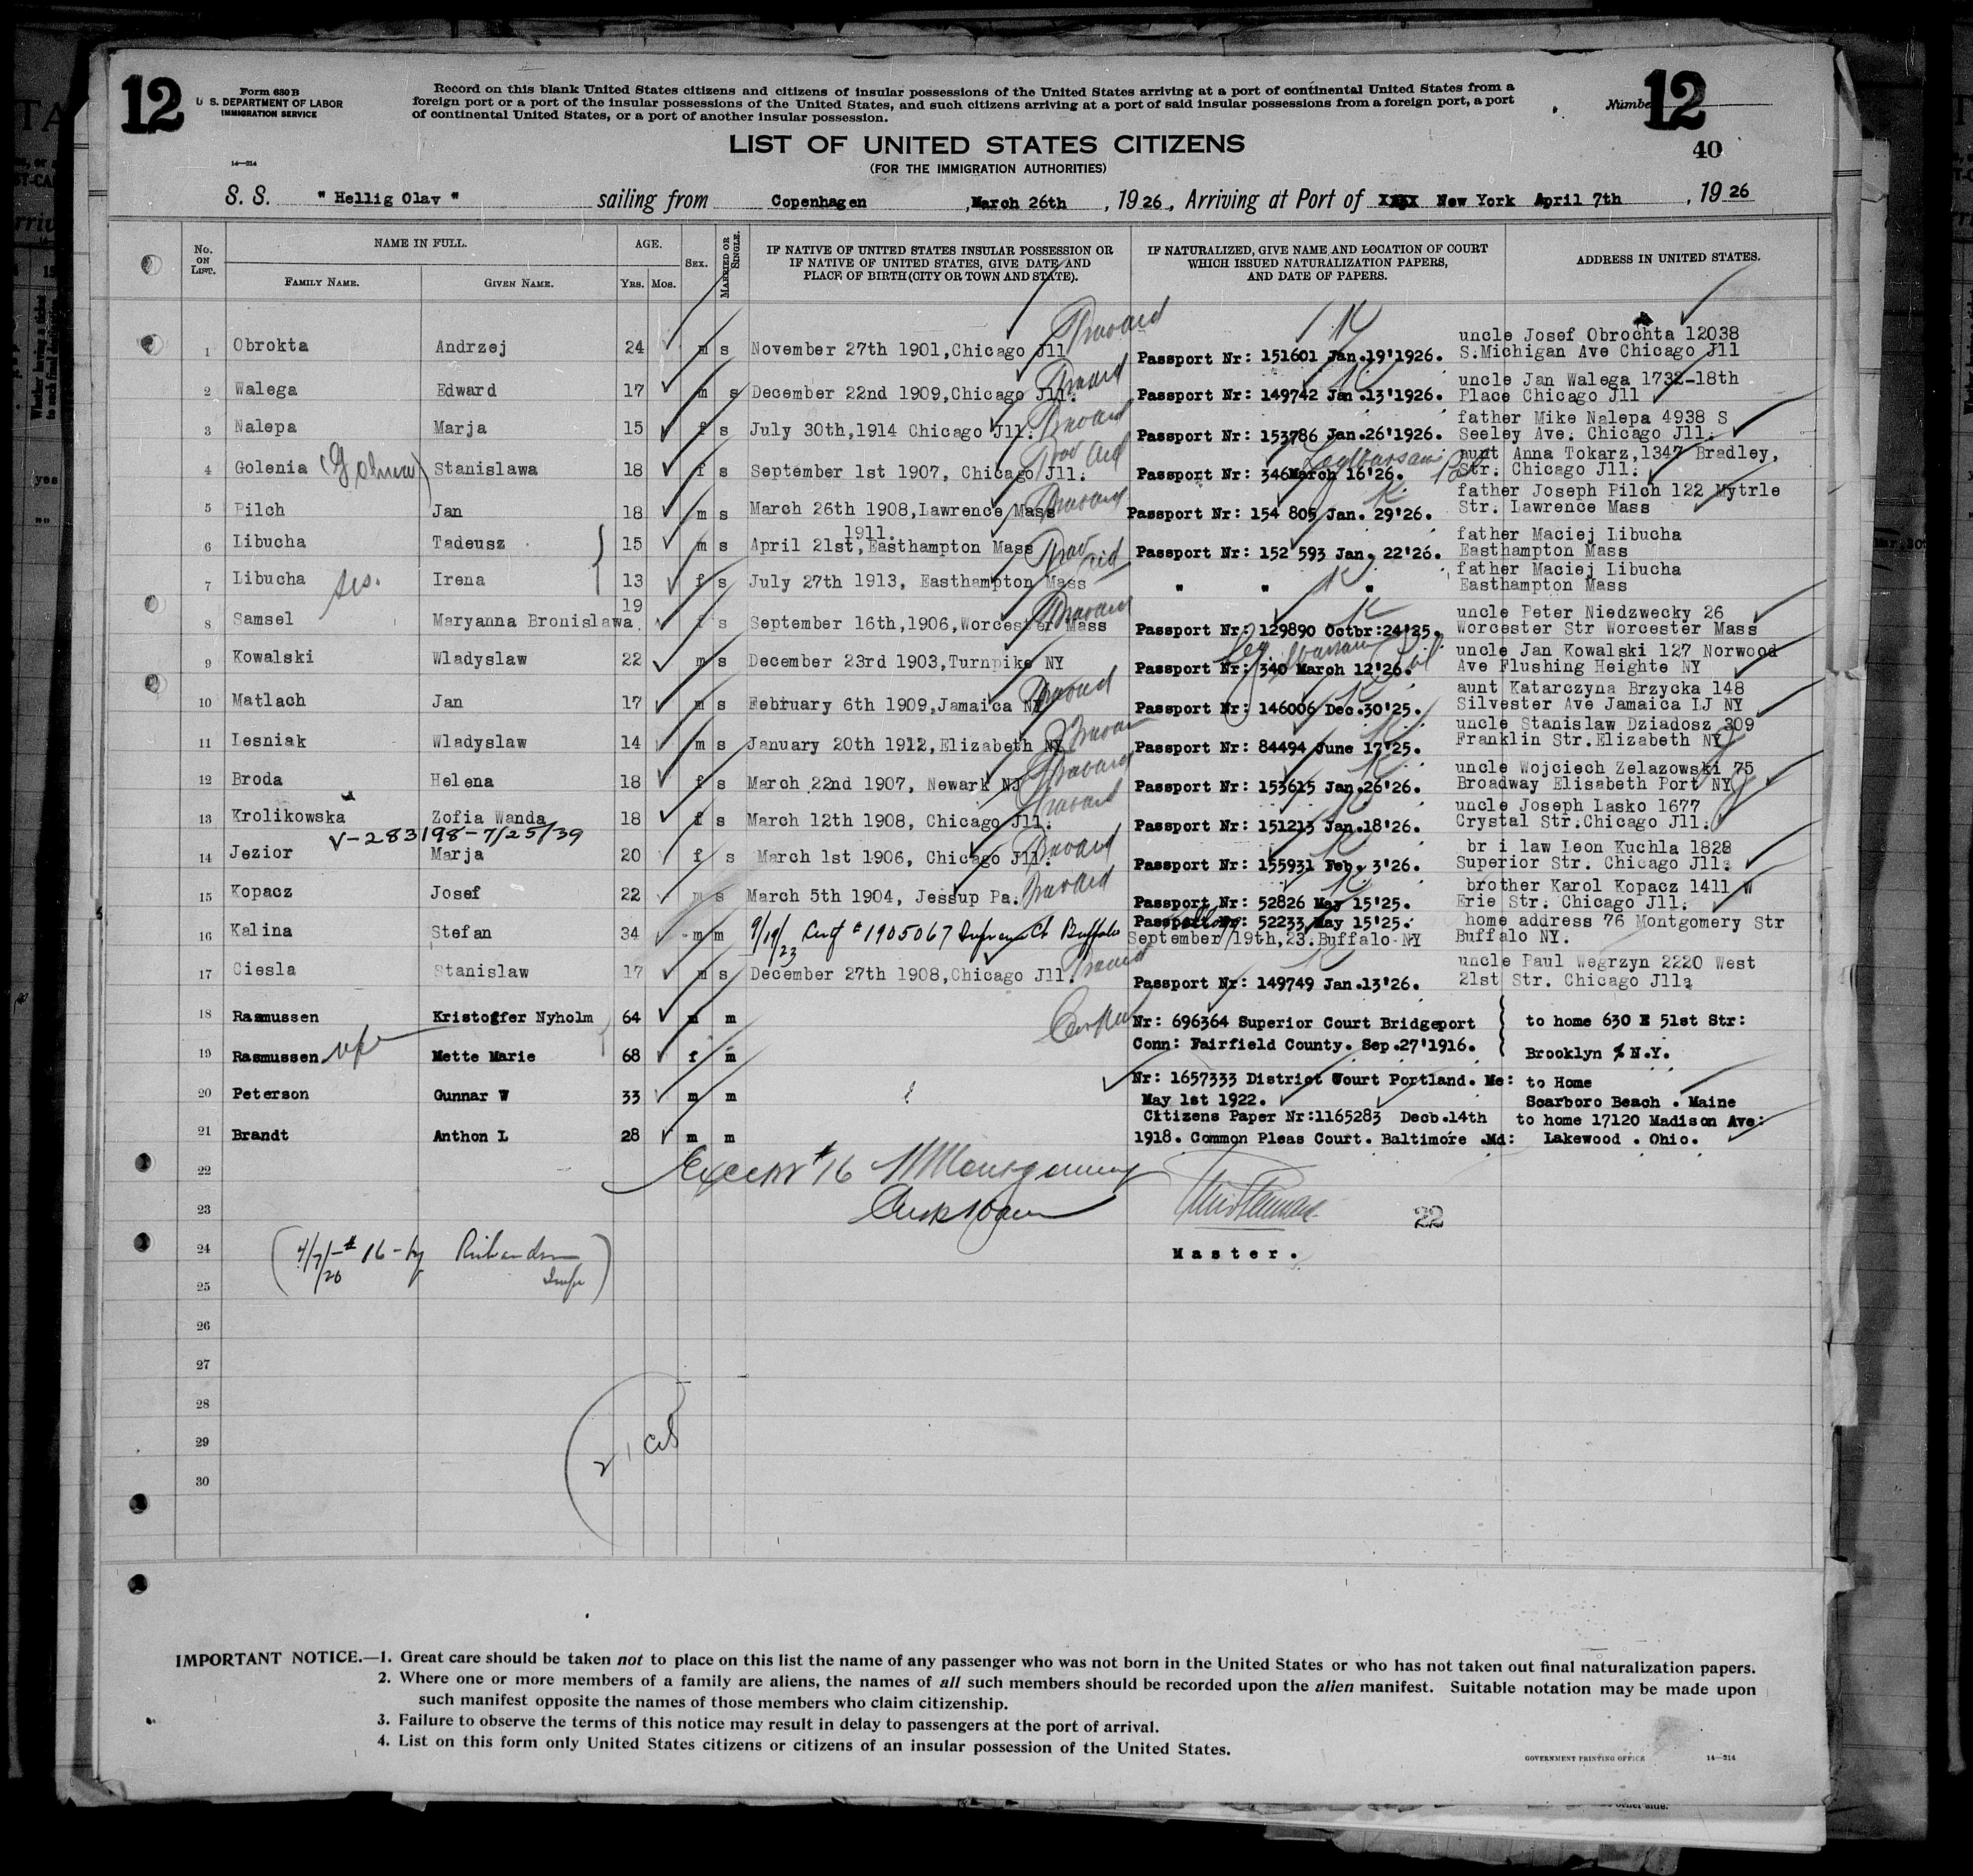 12
Form 630 B
U S. DEPARTMENT OF LABOR
IMMIGRATION SERVICE
14—214
Record on this blank United States citizens and citizens of insular possessions of the United States arriving at a port of continental United States from a
foreign port or a port of the insular possessions of the United States, and such citizens arriving at a port of said insular possessions from a foreign port, a port
of continental United States, or a port of another insular possession.
Number 12
40
LIST OF UNITED STATES CITIZENS
(FOR THE IMMIGRATION AUTHORITIES)
S. S. " Hellig Olav " sailing from Copenhagen , March 26th , 1926, Arriving at Port of XXXX New York April 7th , 1926
No. ON LIST. NAME IN FULL. AGE. SEX. MARRIED OR SINGLE. IF NATIVE OF UNITED STATES INSULAR POSSESSION OR IF NATIVE OF UNITED STATES, GIVE DATE AND PLACE OF BIRTH (CITY OR TOWN AND STATE). IF NATURALIZED, GIVE NAME AND LOCATION OF COURT WHICH ISSUED NATURALIZATION PAPERS, AND DATE OF PAPERS. ADDRESS IN UNITED STATES.
FAMILY NAME. GIVEN NAME. YRS. MOS.
uncle Josef Obrochta 12038
1 Obrokta Andrzej 24 m s November 27th 1901,Chicago Jll Passport Nr: 151601 Jan.19'1926. S.Michigan Ave Chicago Jll
uncle Jan Walega 1732-18th
2 Walega Edward 17 m s December 22nd 1909,Chicago Jll. Passport Nr: 149742 Jan.13'1926. Place Chicago Jll
father Mike Nalepa 4938 S
3 Nalepa Marja 15 f s July 30th,1914 Chicago Jll. Passport Nr: 153786 Jan.26'1926. Seeley Ave. Chicago Jll.
aunt Anna Tokarz,1347 Bradley,
4 Golenia Stanislawa 18 f s September 1st 1907, Chicago Jll. Passport Nr: 346 March 16'26. Str. Chicago Jll.
father Joseph Pilch 122 Mytrle
5 Pilch Jan 18 m s March 26th 1908,Lawrence Mass Passport Nr: 154 805 Jan. 29'26. Str. Lawrence Mass
1911. father Maciej Libucha
6 Libucha Tadeusz 15 m s April 21st,Easthampton Mass Passport Nr: 152 593 Jan. 22'26. Easthampton Mass
father Maciej Libucha
7 Libucha sis. Irena 13 f s July 27th 1913, Easthampton Mass " " " Easthampton Mass
19 uncle Peter Niedzwecky 26
8 Samsel Maryanna Bronislawa f s September 16th,1906,Worcester Mass Passport Nr: 129890 Octbr:24'25. Worcester Str Worcester Mass
uncle Jan Kowalski 127 Norwood
9 Kowalski Wladyslaw 22 m s December 23rd 1903,Turnpike NY Passport Nr: 340 March 12'26. Ave Flushing Heighte NY
aunt Katarczyna Brzycka 148
10 Matlach Jan 17 m s February 6th 1909,Jamaica NY Passport Nr: 146006 Dec.30'25. Silvester Ave Jamaica LJ NY
uncle Stanislaw Dziadosz 309
11 Lesniak Wladyslaw 14 m s January 20th 1912,Elizabeth NY Passport Nr: 84494 June 17'25. Franklin Str.Elizabeth NY
uncle Wojciech Zelazowski 75
12 Broda Helena 18 f s March 22nd 1907, Newark NJ Passport Nr: 153615 Jan.26'26. Broadway Elisabeth Port NY
uncle Joseph Lasko 1677
13 Krolikowska Zofia Wanda 18 f s March 12th 1908, Chicago Jll. Passport Nr: 151213 Jan.18'26. Crystal Str.Chicago Jll.
V-283198-7/25/39
br i law Leon Kuchla 1828
14 Jezior Marja 20 f s March 1st 1906, Chicago Jll. Passport Nr: 155931 Feb. 3'26. Superior Str. Chicago Jll.
brother Karol Kopacz 1411 W
15 Kopacz Josef 22 m s March 5th 1904, Jessup Pa. Passport Nr: 52826 May 15'25. Erie Str. Chicago Jll.
Passport Nr: 52233 May 15'25. home address 76 Montgomery Str
16 Kalina Stefan 34 m m 9/19/23 Cert # 1905067 Supreme Ct Buffalo September 19th,23.Buffalo NY Buffalo NY.
uncle Paul Wegrzyn 2220 West
17 Ciesla Stanislaw 17 m s December 27th 1908,Chicago Jll. Passport Nr: 149749 Jan.13'26. 21st Str. Chicago Jll.
18 Rasmussen Kristoffer Nyholm 64 m m Nr: 696364 Superior Court Bridgeport to home 630 E 51st Str:
Conn: Fairfield County. Sep.27'1916.
19 Rasmussen Mette Marie 68 f m Brooklyn % N.Y.
Nr: 1657333 District Court Portland. Me: to Home
20 Peterson Gunnar W 33 m m May 1st 1922. Scarboro Beach . Maine
Citizens Paper Nr:1165283 Decb.14th to home 17120 Madison Ave:
21 Brandt Anthon L 28 m m 1918. Common Pleas Court. Baltimore .Md: Lakewood . Ohio.
22 Except # 16 Montgomery
23 22
24 16 - by
Master.
25
26
27
28
29
30
IMPORTANT NOTICE.—1. Great care should be taken not to place on this list the name of any passenger who was not born in the United States or who has not taken out final naturalization papers.
2. Where one or more members of a family are aliens, the names of all such members should be recorded upon the alien manifest. Suitable notation may be made upon
such manifest opposite the names of those members who claim citizenship.
3. Failure to observe the terms of this notice may result in delay to passengers at the port of arrival.
4. List on this form only United States citizens or citizens of an insular possession of the United States.
GOVERNMENT PRINTING OFFICE 14—214